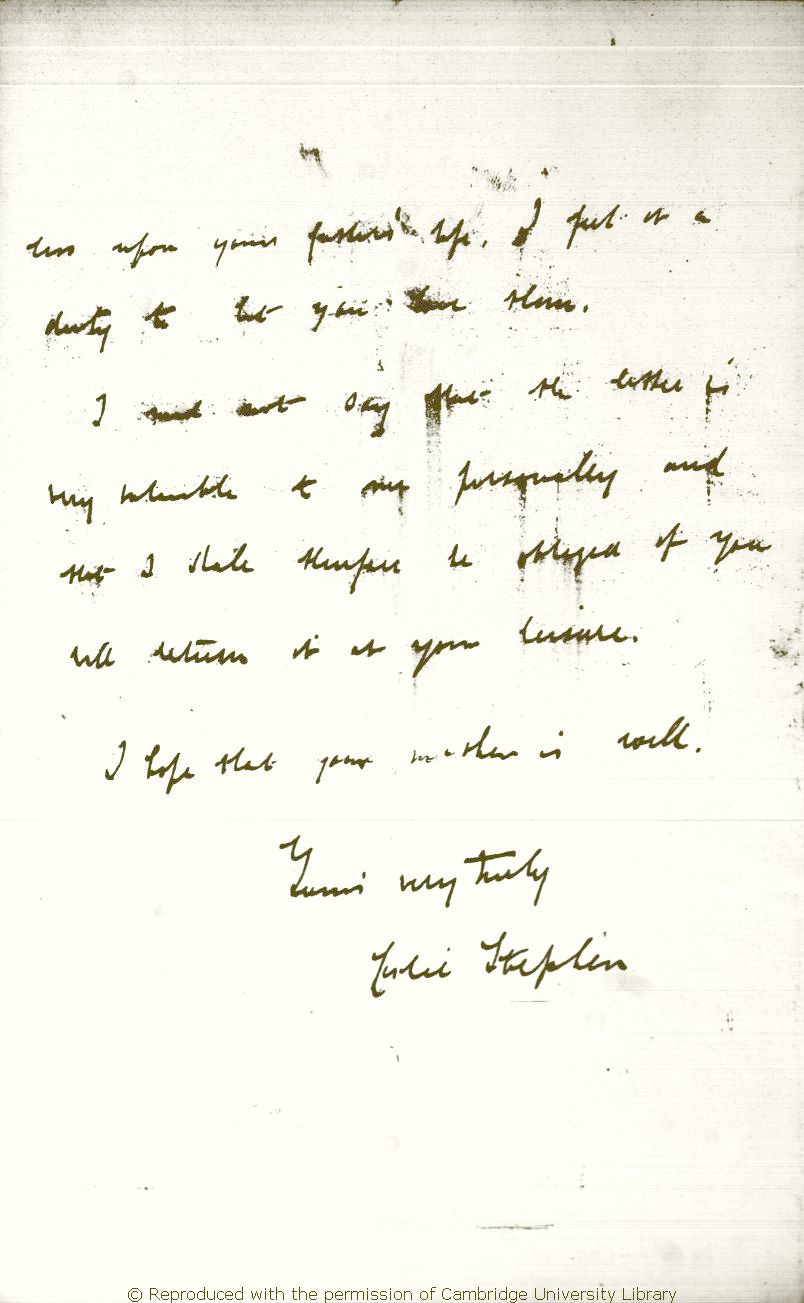 less upon your father's life, I feel it a
duty to let you have them.
I need not say that the letter is
very valuable to me personally and
that I shall therefore be obliged if you
will return it at your leisure.
I hope that your mother is well.
Yours very truly
Leslie Stephen
© Reproduced with the permission of Cambridge University Library